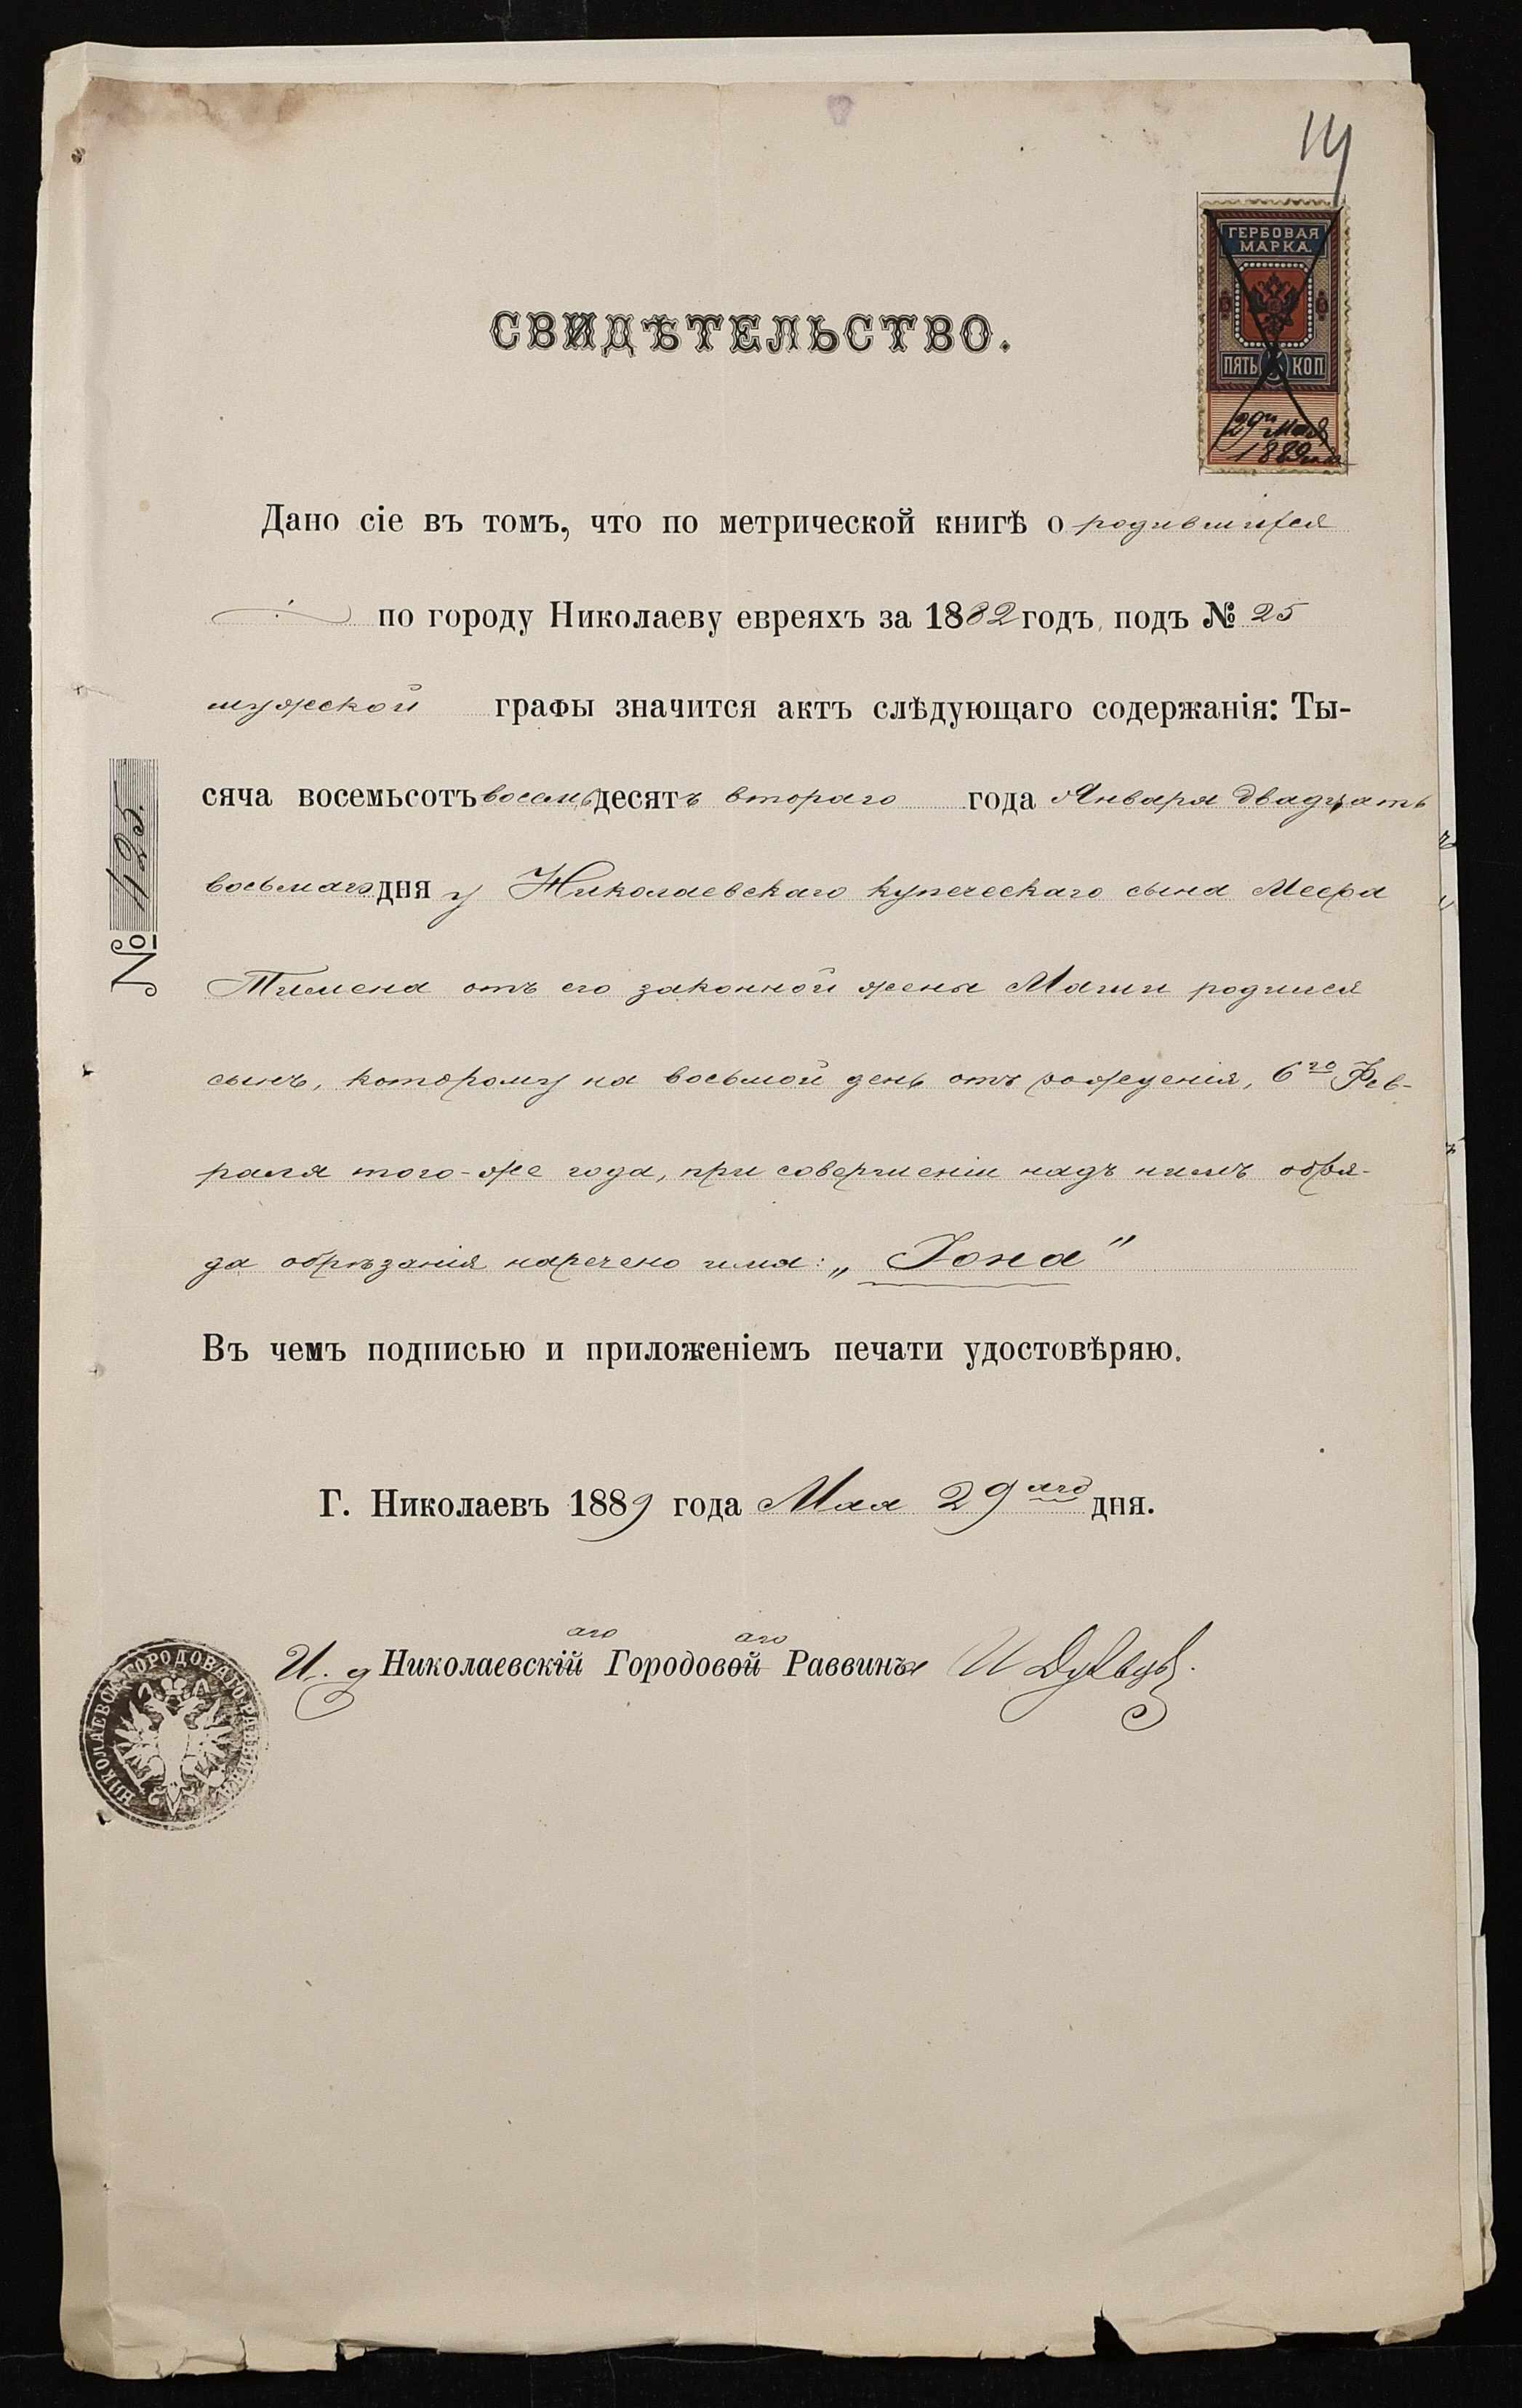 14
ГЕРБОВАЯ
МАРКА.
ПЯТЬ 5 КОП
29го мая
1889 года
СВИДѢТЕЛЬСТВО.
Дано сіе въ томъ, что по метрической книгѣ о родившихся
по городу Николаеву евреяхъ за 1882 годъ, подъ № 25
мужской графы значится актъ слѣдующаго содержанія: Ты-
сяча восемьсотъ восемьдесятъ втораго года Января двадцать
восьмаго дня у Николаевскаго купеческаго сына Меера
Тимена отъ его законной жены Маши родился
сынъ, которому на восьмой день отъ рожденія, 6го Фев-
раля того-же года, при совершеніи надъ нимъ обря-
да обрѣзанія наречено имя: „Іона"
Въ чемъ подписью и приложеніемъ печати удостовѣряю.
№ 125.
Г. Николаевъ 1889 года Мая 29аго дня.
И. д Николаевскаго Городоваго Раввина И
НИКОЛАЕВСК. ГОРОДОВАГО РАВВИНА